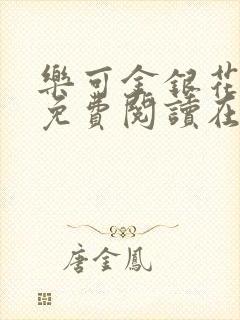 樂可金銀花
免費閱讀在
唐金鳳